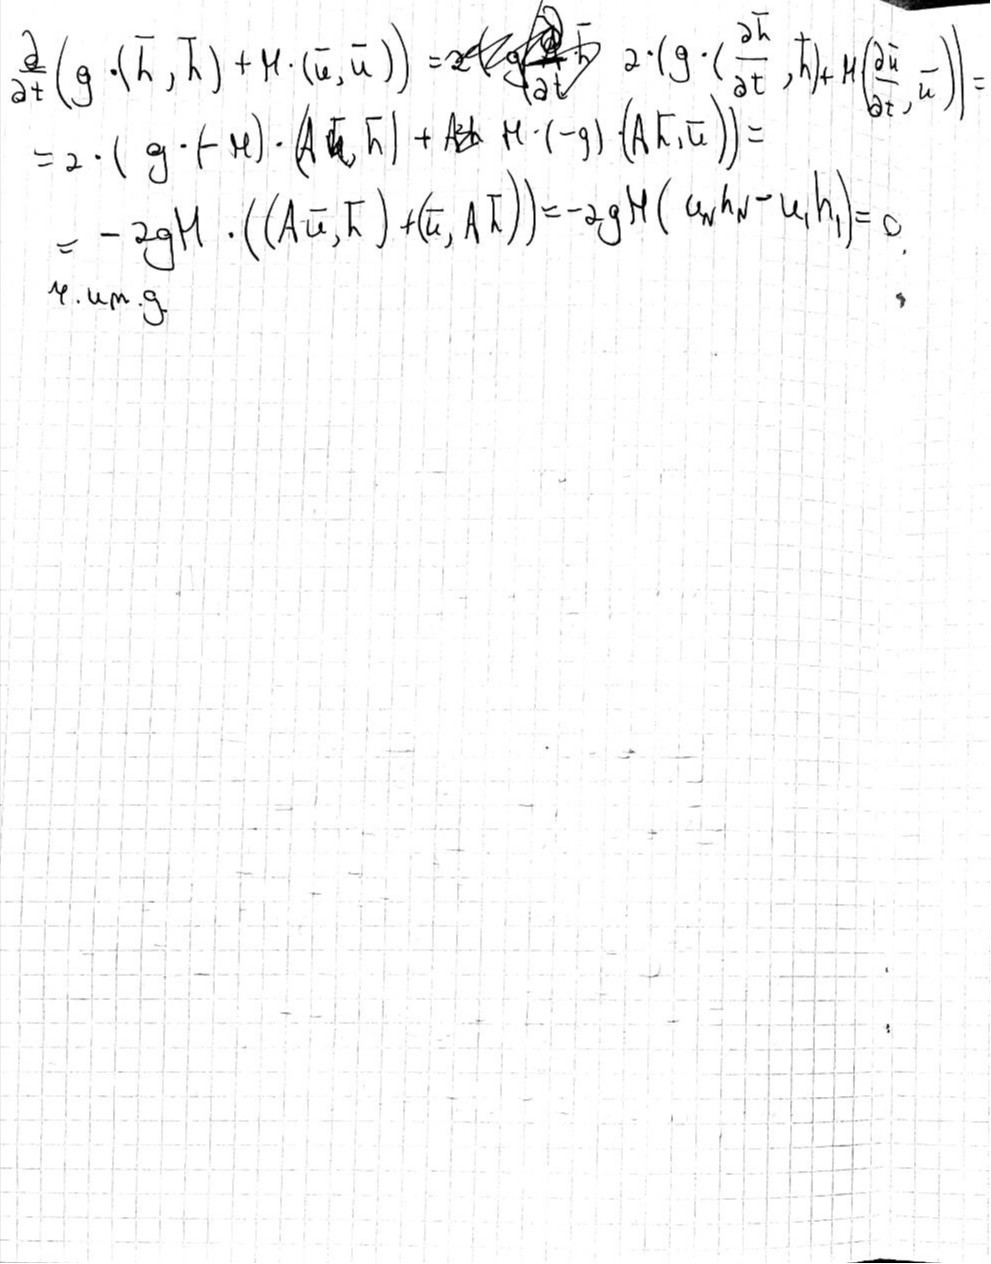 ∂/∂t (g·(h̄, h̄) + H·(ū, ū)) = 2·(g·(∂h̄/∂t, h̄) + H(∂ū/∂t, ū)) =
= 2·(g·(-H)·(Aū, h̄) + H·(-g)·(Ah̄, ū)) =
= -2gH·((Aū, h̄) + (ū, Ah̄)) = -2gH(u_N h_N - u_1 h_1) = 0.
ч.и т.д.